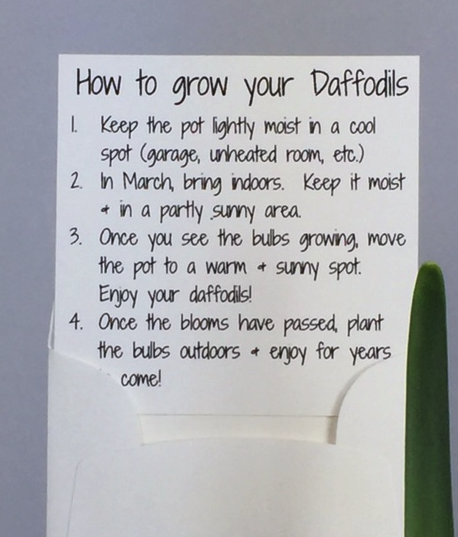 How to grow your Daffodils
1. Keep the pot lightly moist in a cool
spot (garage, unheated room, etc.)
2. In March, bring indoors. Keep it moist
+ in a partly sunny area.
3. Once you see the bulbs growing, move
the pot to a warm + sunny spot.
Enjoy your daffodils!
4. Once the blooms have passed, plant
the bulbs outdoors + enjoy for years
come!